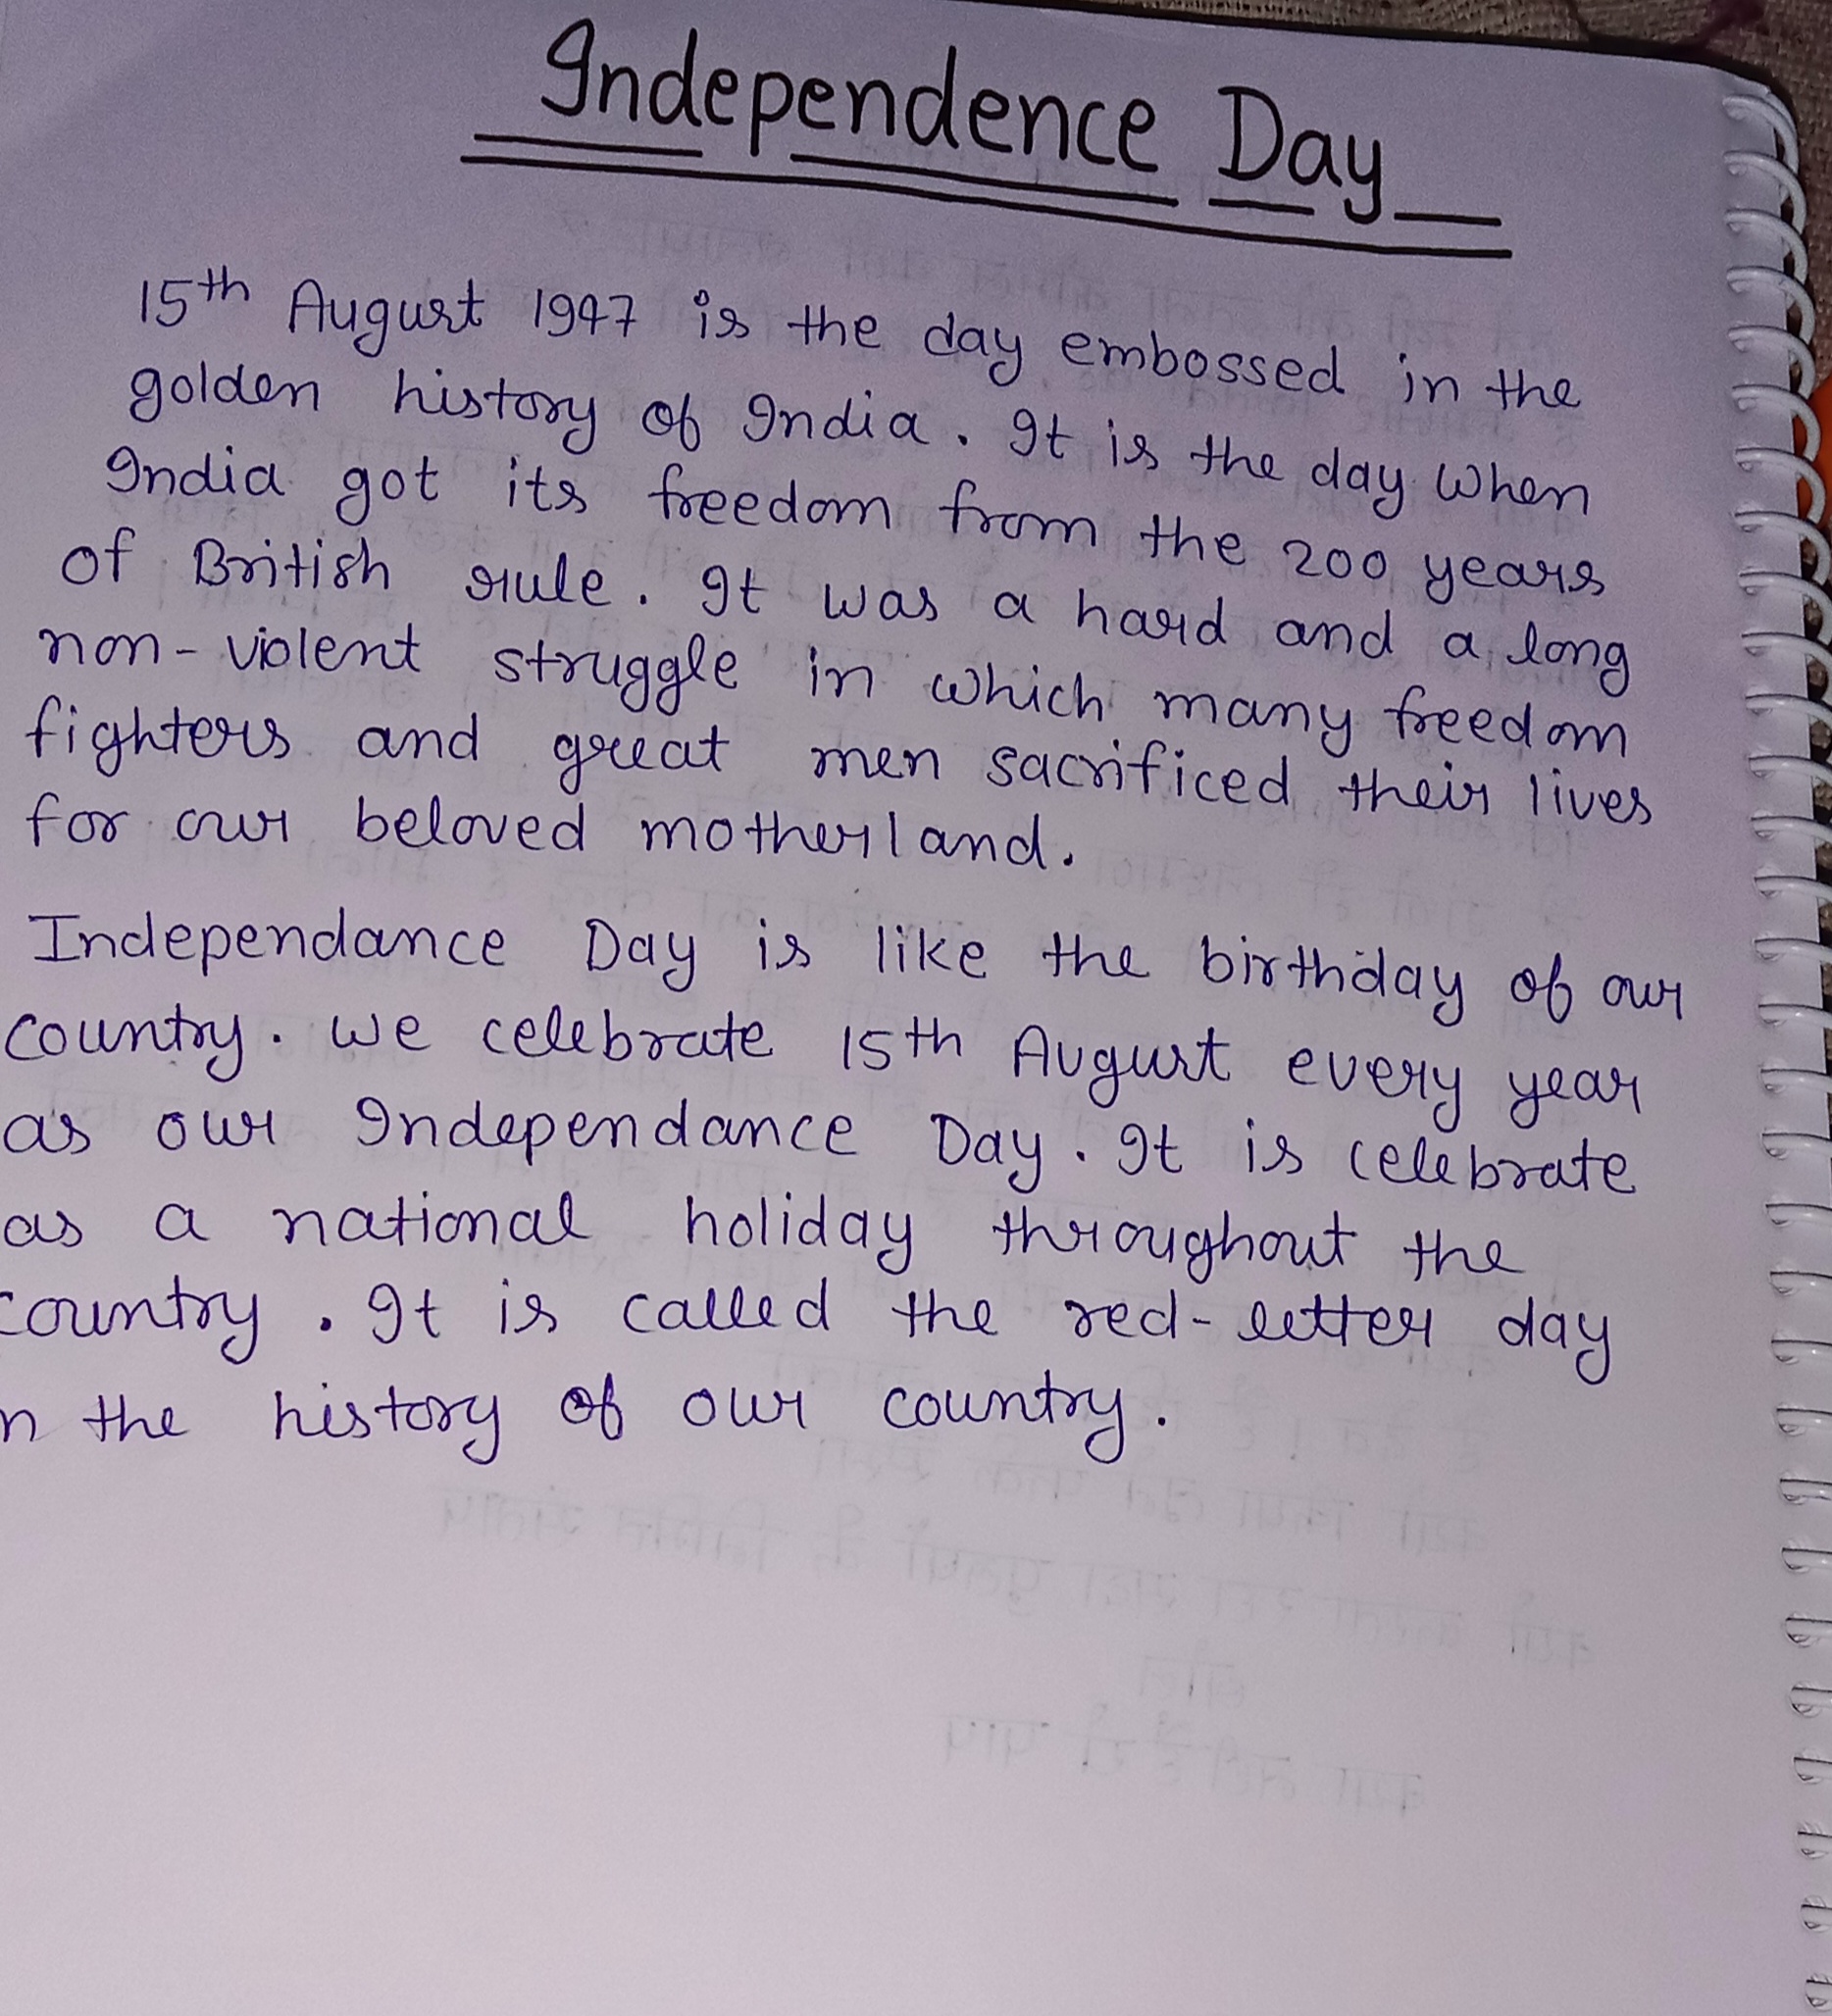 Independence Day
15th August 1947 is the day embossed in the
golden history of India. It is the day when
India got its freedom from the 200 years
of British rule. It was a hard and a long
non-violent struggle in which many freedom
fighters and great men sacrificed their lives
for our beloved motherland.
Independance Day is like the birthday of our
country. we celebrate 15th August every year
as our Independance Day. It is celebrate
as a national holiday throughout the
country. It is called the red-letter day
n the history of our country.